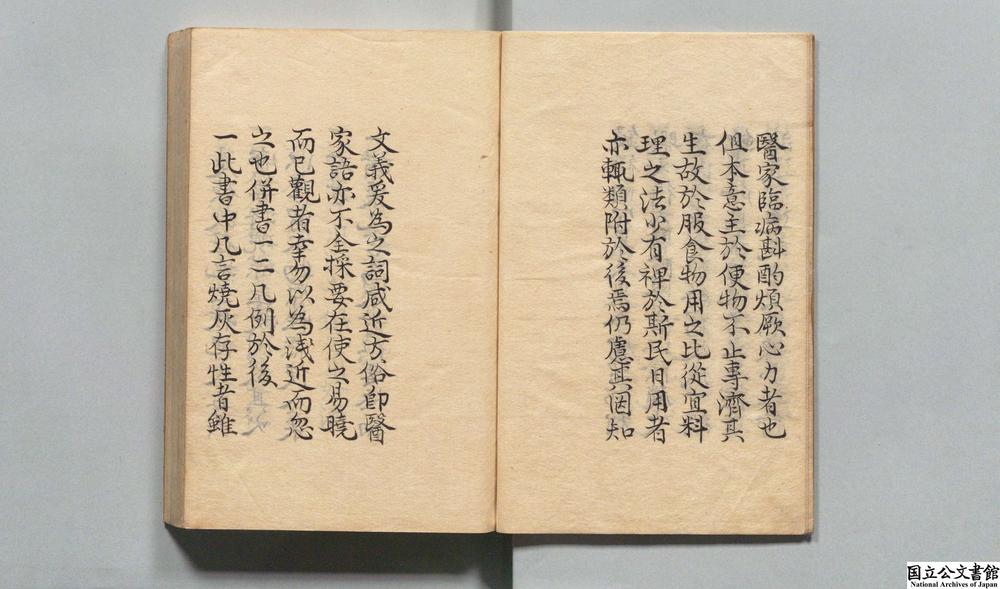 醫家臨病斟酌煩厥心力者也
但本意主於便物不止專濟其
生故於服食物用之比從宜料
理之法少有裨於斯民日用者
亦輒類附於後焉仍慮其罔知
文義爰為之詞咸近方俗卸醫
家語亦不全採要在使之易曉
而已觀者幸勿以為浅近而忽
之也併書一二凡例於後
一此書中凡言燒灰存性者雖
国立公文書館
National Archives of Japan